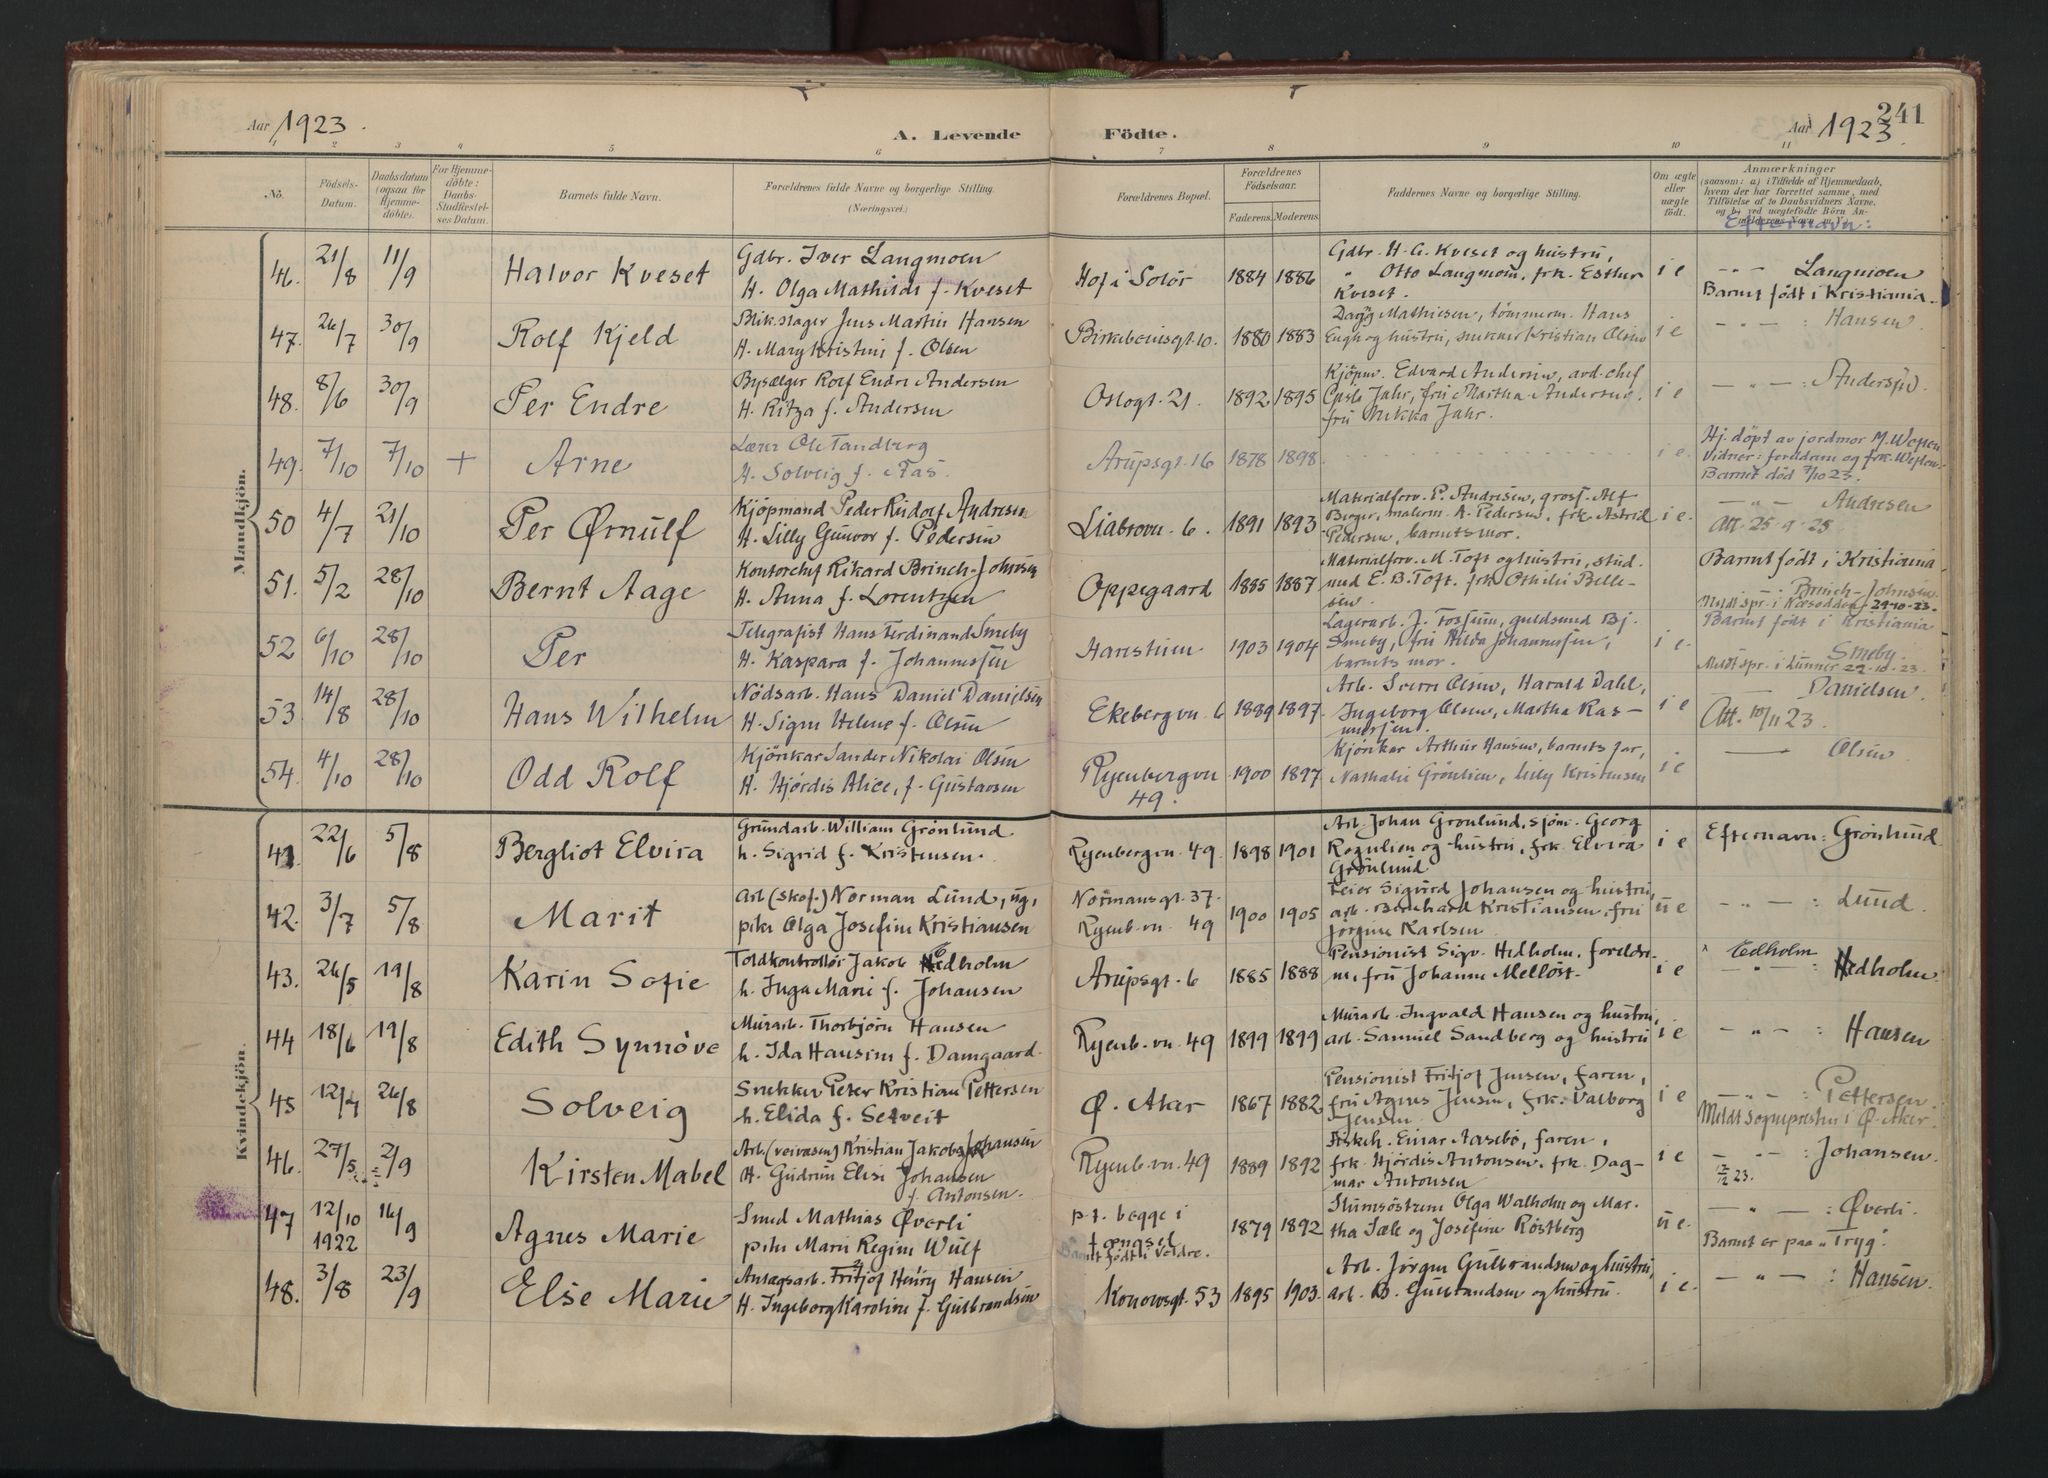 241
Aar 1923.
A. Levende Födte.
Aar 1923
1 2 3 4 5 6 7 8 9 10 11
No. Födsels-Datum. Daabsdatum (ogsaa för Hjemmedöbte). For Hjemmedöbte: Daabs-Stadfæstelses Datum. Barnets fulde Navn. Forældrenes fulde Navne og borgerlige Stilling. (Næringsvei.) Forældrenes Bopæl. Forældrenes Födselsaar. Faderens. Moderens. Faddernes Navne og borgerlige Stilling. Om ægte eller uægte födt. Anmærkninger
(saasom: a) i Tilfælde af Hjemmedaab,
hvem der har forrettet samme, med
Tilföielse af to Daabsvidners Navne.
Efternavn:
Mandkjön.
46. 21/8 11/9 Halvor Kveset
Gdbr. Iver Langmoen
H. Olga Mathilde f. Kveset
Hof i Solör 1884 1886
Gdbr. H. G. Kveset og hustru,
" Otto Langmoen, frk. Esther
Kveset.
i e
– " – Langmoen
Barnet födt i Kristiania.
47. 26/7 30/9 Rolf Kjeld
Blikslager Jens Martin Hansen
H. Mary Kristine f. Olsen
Birkebeinergt. 10. 1880 1883
Dagg Mathiesen, tömmerm. Hans
Engh og hustru, snekker Kristian Olsen
i e
– " – : Hansen
48. 8/6 30/9 Per Endre
Bysælger Rolf Endre Andersen
H. Ritza f. Andersen
Oslogt. 21. 1892 1895
Kjöpm. Edvard Andersen, avd. chef
Jahr, fru Martha Andersen,
fru Jahr.
i e
– " – : Andersen.
49. 7/10 7/10 + Arne
Lærer Ole Tandberg
H. Solveig f. Aas
Arupsgt. 16 1878 1898
i e.
Hj. döpt av jordmor M. Westen
Vidner: foreldrene og frk. Westen.
Barnet död 7/10 23.
50 4/7 21/10 Per Ørnulf
Kjöpmand Peder Rudolf Andresen
H. Lilly Gunvor f. Pedersen
Liabrovn. 6. 1891 1893
Materialforv. P. Andresen, gross. Alf
Berger, malerm. A. Pedersen, frk. Astrid
Pedersen, barnets mor.
i e.
– " – Andresen
Att. 25-9-25
51. 5/2 28/10 Bernt Aage
Kontorchef Rikard Brinch-Johnsen
H. Anna f. Lorentzen
Oppegaard 1885 1887
Materialforv. M. Toft og hustru, stud.
med E. B. Toft. frk. Othilie Belle-
sen
i e
Barnet födt i Kristiania
– Brinch-Johnsen
Meldt spr. i Næsodden 29-10-23.
52 6/10 28/10 Per
Telegrafist Hans Ferdinand Smeby
H. Kaspara f. Johannessen
Harestuen 1903 1904
Lagerarb. J. Fossum, guldsmed Bj.
Smeby, fru Hilda Johannessen,
barnets mor.
i e.
Barnet födt i Kristiania
Smeby.
Meldt spr. i Lunner 29-10-23.
53. 14/8 28/10 Hans Wilhelm
Nödsarb. Hans Daniel Danielsen
H. Signe Helene f. Olsen
Ekebergvn. 6 1889 1897
Arb. Sverre Olsen, Harald Dahl,
Ingeborg Olsen, Martha Ras-
mussen.
i e
– Danielsen.
Att. 10/11 23.
54. 4/10 28/10 Odd Rolf
Kjörekar Sander Nikolai Olsen
H. Hjördis Alice, f. Gustavsen
Ryenbergvn
49.
1900 1897
Kjörekar Arthur Hansen, barnets far,
Nathalie Grönlien, Lilly Kristensen
i e
– Olsen
Kvindekjön.
41 22/6 5/8 Bergliot Elvira
Grundarb. William Grönlund
h. Sigrid f. Kristensen.
Ryenbergvn. 49. 1898 1901
Arb. Johan Grönlund, sjöm. Georg
Rognlien og hustru, frk. Elvira
Grönlund
i e
Efternavn: Grönlund
42. 3/7 5/8 Marit
Arb (skof.) Norman Lund, ug,
pike Olga Josefine Kristiansen
Normansgt. 37.
Ryenb. vn. 49
1900 1905
Feier Sigurd Johansen og hustru,
arb. Bernhard Kristiansen, fru
Jörgine Karlsen
u e
– " – : Lund.
43. 26/5 19/8 Karin Sofie
Toldkontrollör Jakob Edholm
h. Inga Marie f. Johansen
Arupsgt. 6 1885 1888
Pensionist Sigv. Hedholm, foreldre-
ne, fru Johanne Mellöst.
i e
Edholm
– " – Hedholm
44 18/6 19/8 Edith Synnöve
Murarb. Thorbjörn Hansen
h. Ida Hansine f. Damgaard.
Ryenb. vn. 49 1899 1899
Murarb. Ingvald Hansen og hustru,
arb. Samuel Sandberg og hustru
i e
– " – : Hansen
45 12/4 26/8 Solveig
Snekker Peter Kristian Pettersen
h. Elida f. Setveit
Ø. Aker 1867 1882
Pensionist Fritjof Jensen, faren,
fru Agnes Jensen, frk. Valborg
Jensen
i e
– " – : Pettersen.
Meldt sogneprsten i Ø. Aker.
46. 27/5 2/9 Kirsten Mabel
Arb. (veivæsen) Kristian Jakob Johansen
H. Gudrun Elise Johansen
f. Antonsen.
Ryenb. vn. 49 1889 1892
Fiskeh. Einar Aasebö, faren,
frk. Hjördis Antonsen, frk. Dag-
mar Antonsen
i e
– " – : Johansen.
47 12/10 1922 16/9 Agnes Marie
Smed Mathias Øverli
pike Marie Regine Wulf
p.t. begge i
fængsel
Barnet födt i Veldre.
1879 1892
Slumsöstrene Olga Walholm og Mar-
tha Sæle og Josefine Röstberg
u e.
– " – : Øverli.
Barnet er paa "Tryg".
48. 3/8 23/9 Else Marie
Anlægsarb. Fritjof Henry Hansen
H. Ingeborg Karoline f. Gulbrandsen
Konowsgt. 53 1895 1903.
Arb. Jörgen Gulbrandsen og hustru,
arb. B. Gulbrandsen og hustru.
i e.
– " – : Hansen.